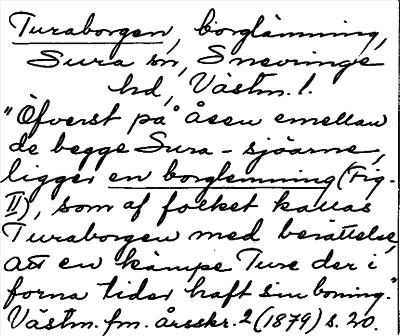 Turaborgen, borglämning,
Sura sn, Snevringe
hd, Västm. l.
"Öfverst på åsen emellan
de begge Sura-sjöarne,
ligger en borglemning (Fig.
II), som af folket kallas
Turaborgen med berättelse,
att en kämpe Ture der i
forna tider haft sin boning."
Västm. fm. årsskr. 2 (1879) s. 20.